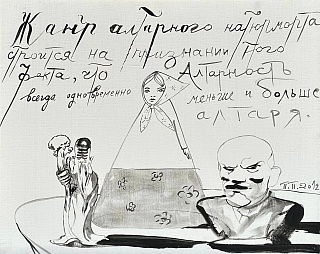 Жанр алтарного натюрморта
строится на признании того
факта, что Алтарность
всегда одновременно меньше и больше
алтаря.
П.П. 2012